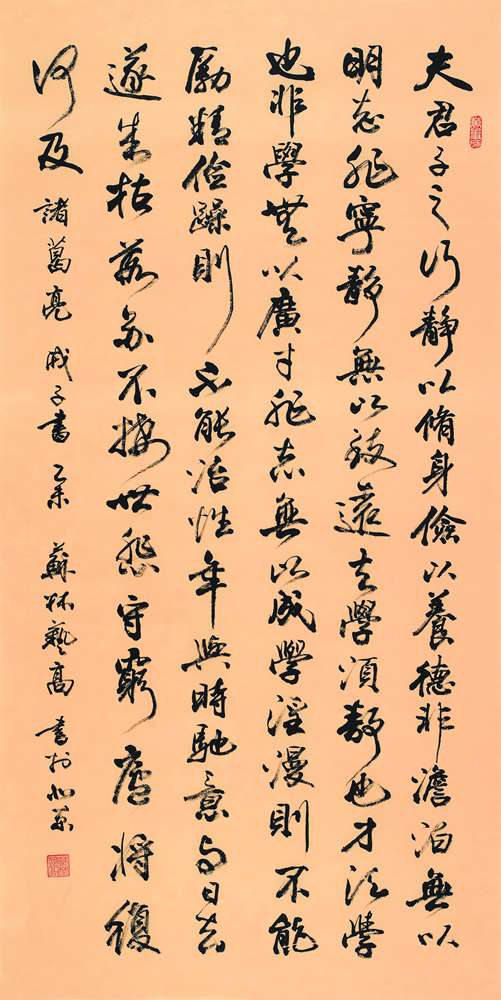 夫君子之行靜以脩身儉以養德非澹泊無以
明志非寧靜無以致遠夫學須靜也才須學
也非學無以廣才非志無以成學淫漫則不能
勵精俭躁則不能治性年與時馳意与日去
遂成枯落多不接世悲守窮廬將復
何及 諸葛亮 戒子書 乙未 蘇林藝高 書於北京